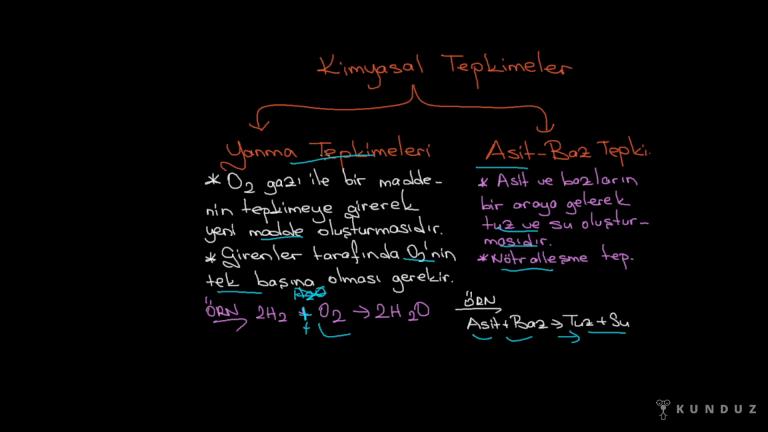 Kimyasal Tepkimeler
Yanma Tepkimeleri
* O2 gazı ile bir madde-
nin tepkimeye girerek
yeni madde oluşturmasıdır.
* Girenler tarafında O2'nin
tek başına olması gerekir.
H2O
ÖRN 2H2 + O2 → 2H2O
Asit-Baz Tepki.
* Asit ve bazların
bir araya gelerek
tuz ve su oluştur-
masıdır.
* Nötralleşme tep.
ÖRN
Asit + Baz → Tuz + Su
KUNDUZ